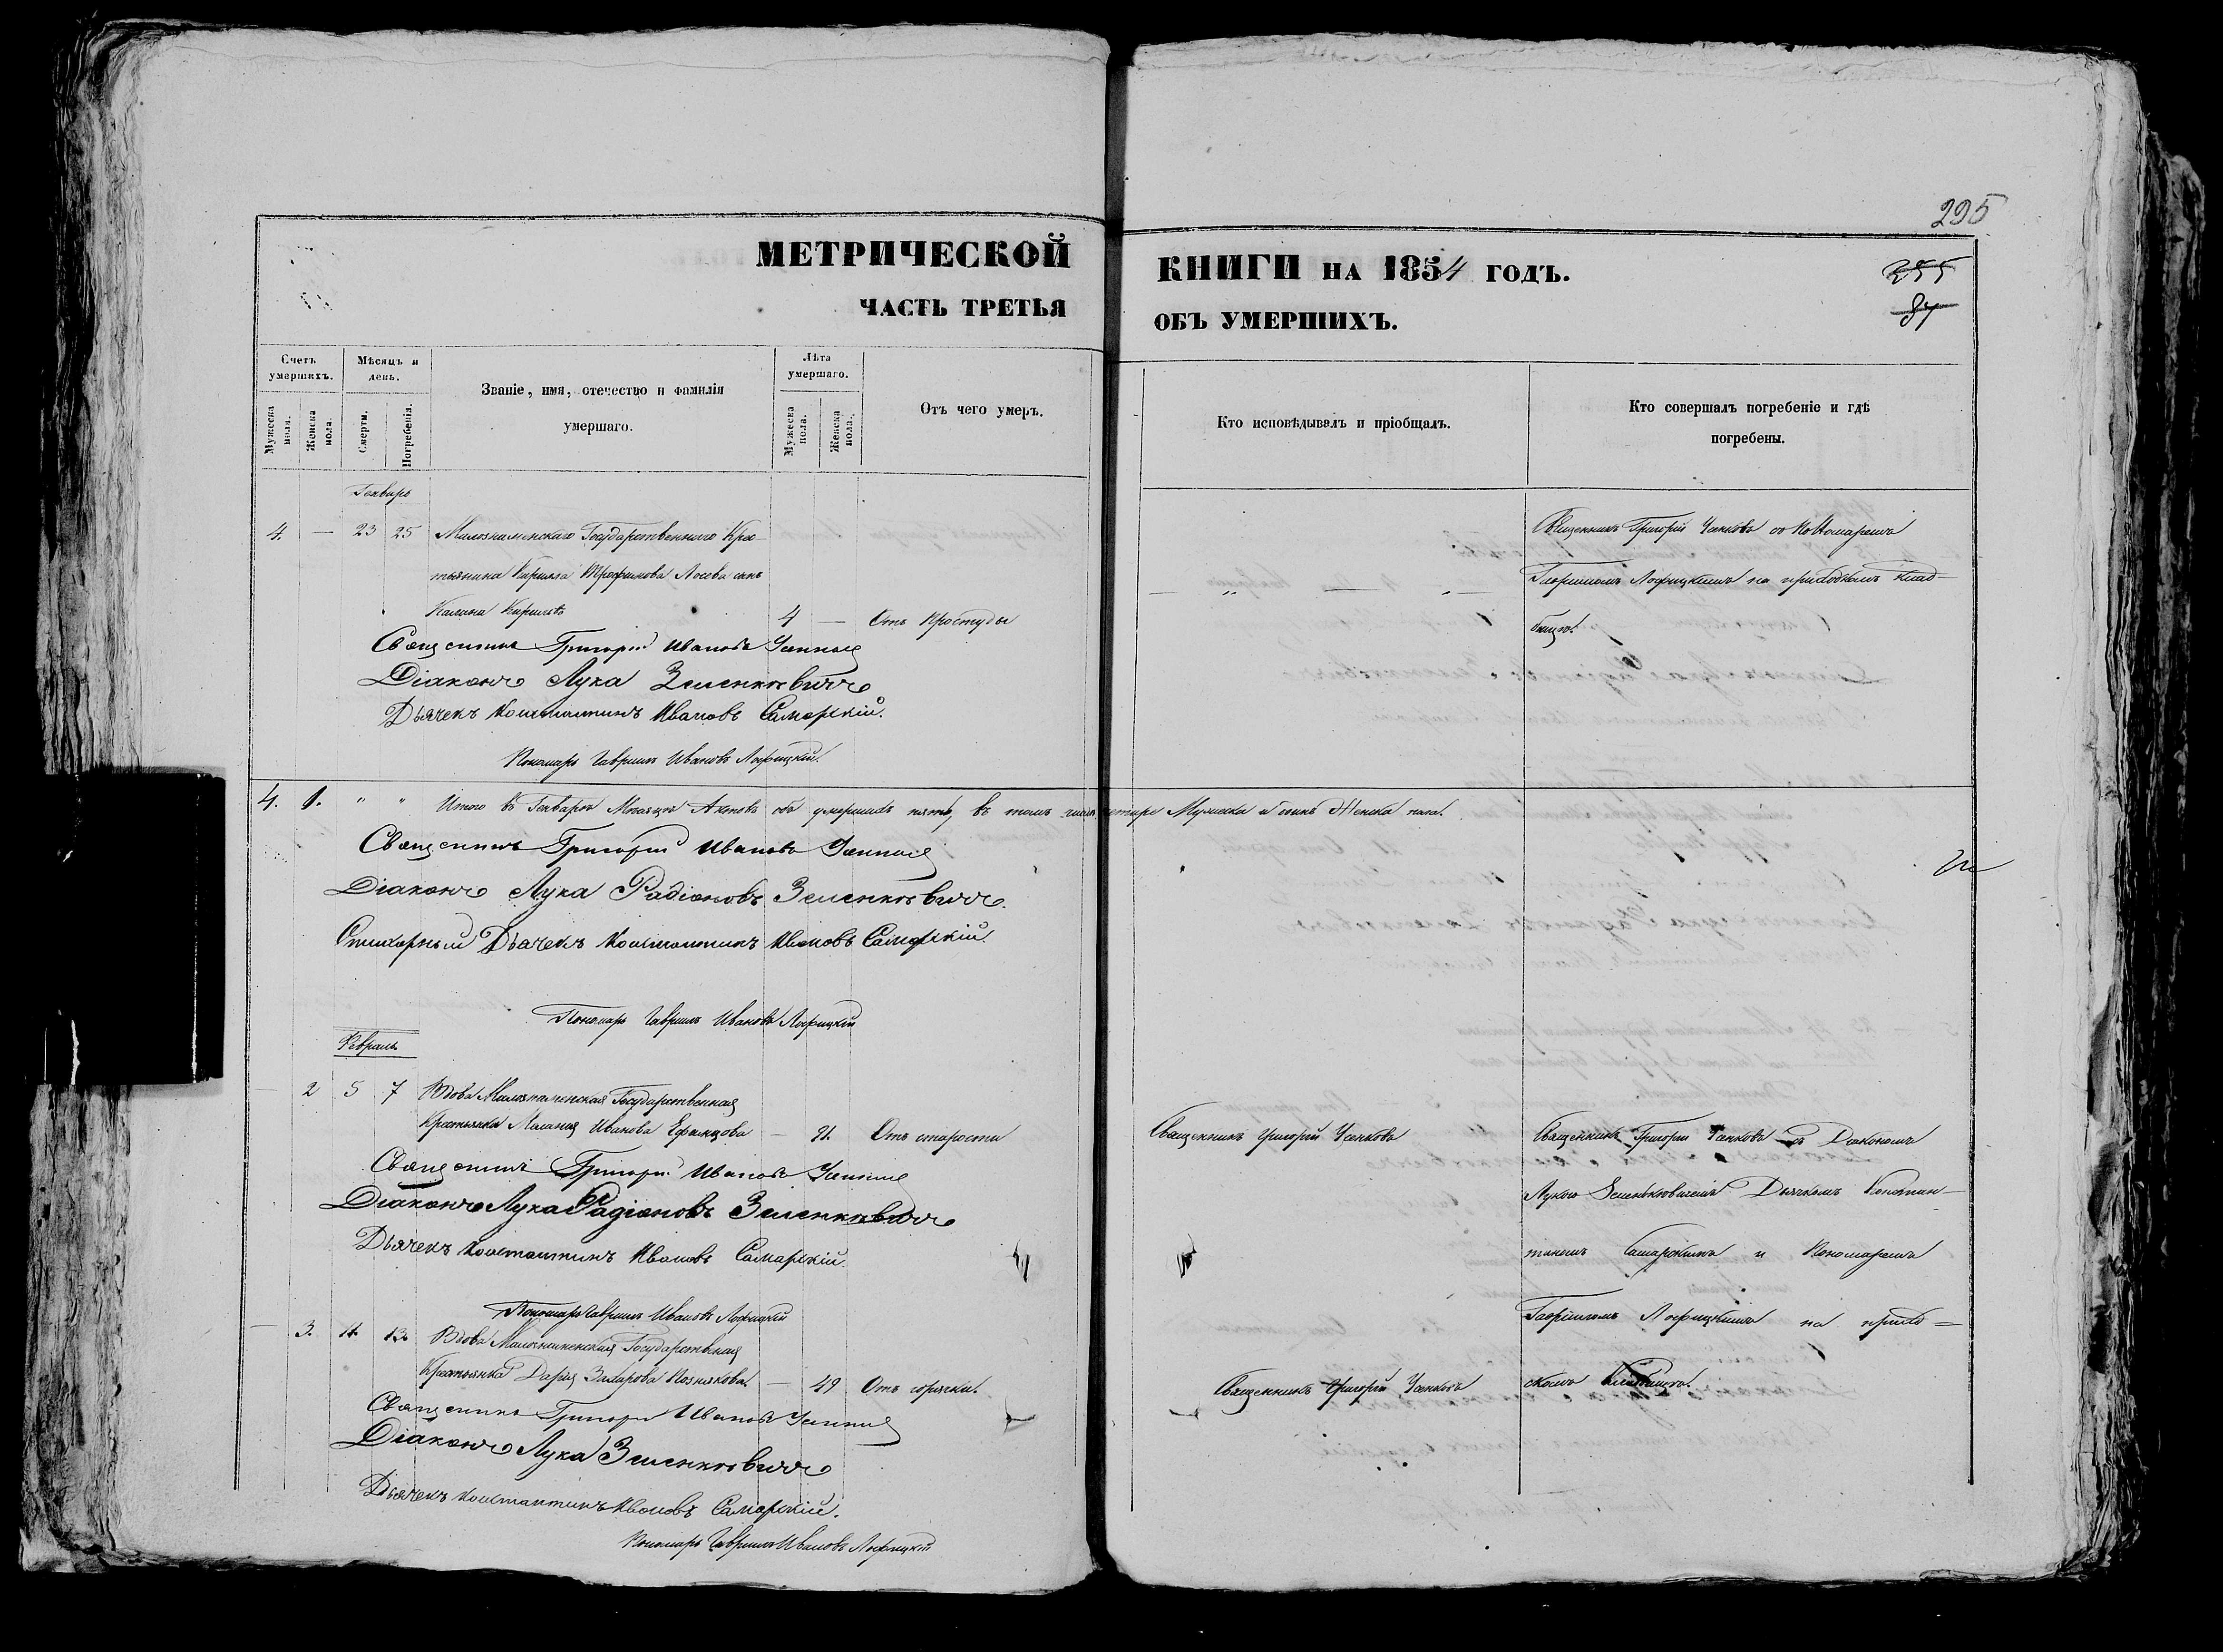 295
МЕТРИЧЕСКОЙ КНИГИ НА 1854 ГОДЪ.
255
87
ЧАСТЬ ТРЕТЬЯ ОБЪ УМЕРШИХЪ.
Счетъ умершихъ.
Мужеска пола.
Женска пола.
Мѣсяцъ и день.
Смерти.
Погребенія.
Званіе, имя, отечество и фамилія умершаго.
Лѣта умершаго.
Мужеска пола.
Женска пола.
Отъ чего умеръ.
Кто исповѣдывалъ и пріобщалъ.
Кто совершалъ погребеніе и гдѣ погребены.
Генварь
4. — 23 25 Малознаменскаго Государственнаго Крес-
тьянина Кирилла Трофимова Лосева сынъ
4 — Отъ Простуды
Священникъ Григорій со Пономаремъ
Гавріиломъ Лофицкимъ на приходскомъ клад-
бищѣ.
Священникъ Григорій Ивановъ
Діаконъ Лука Зеленкевичъ
Дьячекъ Константинъ Ивановъ Самарскій.
Пономарь Гавріилъ Ивановъ Лофицкій.
4. 1. " " Итого въ Генварѣ Мѣсяцѣ Актовъ объ умершихъ пять, въ томъ числѣ четыре Мужеска и одинъ Женска пола.
Священникъ Григорій Ивановъ
Діаконъ Лука Радіоновъ Зеленкевичъ.
Стихарный Дьячекъ Константинъ Ивановъ Самарскій.
Пономарь Гавріилъ Ивановъ Лофицкій
Февраль
— 2 5 7 Вдова Малознаменская Государственная
Крестьянка Маланія Иванова — 91. Отъ старости
Священникъ Григорій
Священникъ Григорій съ Діакономъ
Лукою Зеленкевичемъ Дьячкомъ Констан-
тиномъ Самарскимъ и Пономаремъ
Гавріиломъ Лофицкимъ на приход-
скомъ кладбищѣ.
Священникъ Григорій Ивановъ
Діаконъ Лука Радіоновъ Зеленкевичъ
Дьячекъ Константинъ Ивановъ Самарскій.
Пономарь Гавріилъ Ивановъ Лофицкій
— 3. 11. 13. Вдова Малознаменская Государственная
Крестьянка Дарія Захарова Познякова. — 49 Отъ горячки.
Священникъ Григорій
Священникъ Григорій Ивановъ
Діаконъ Лука Зеленкевичъ
Дьячекъ Константинъ Ивановъ Самарскій.
Пономарь Гавріилъ Ивановъ Лофицкій